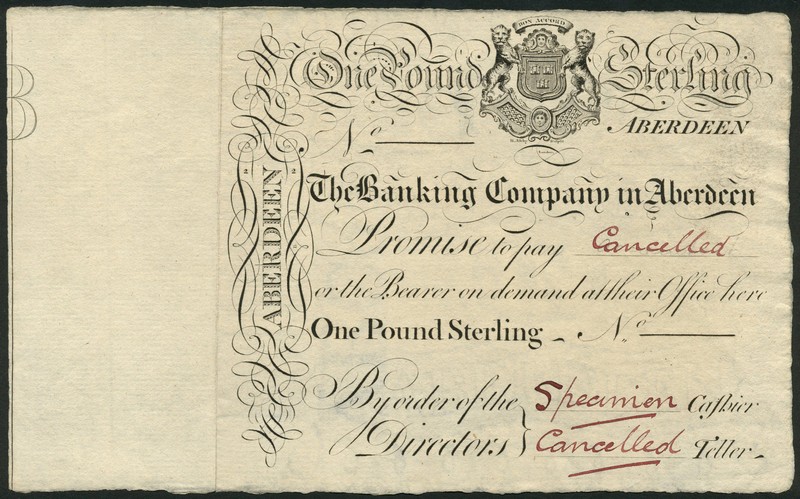 BON ACCORD
One Pound Sterling
No
ABERDEEN
ABERDEEN
The Banking Company in Aberdeen
Promise to pay Cancelled
or the Bearer on demand at their Office here
One Pound Sterling - No
By order of the Specimen Caſhier
Directors Cancelled Teller